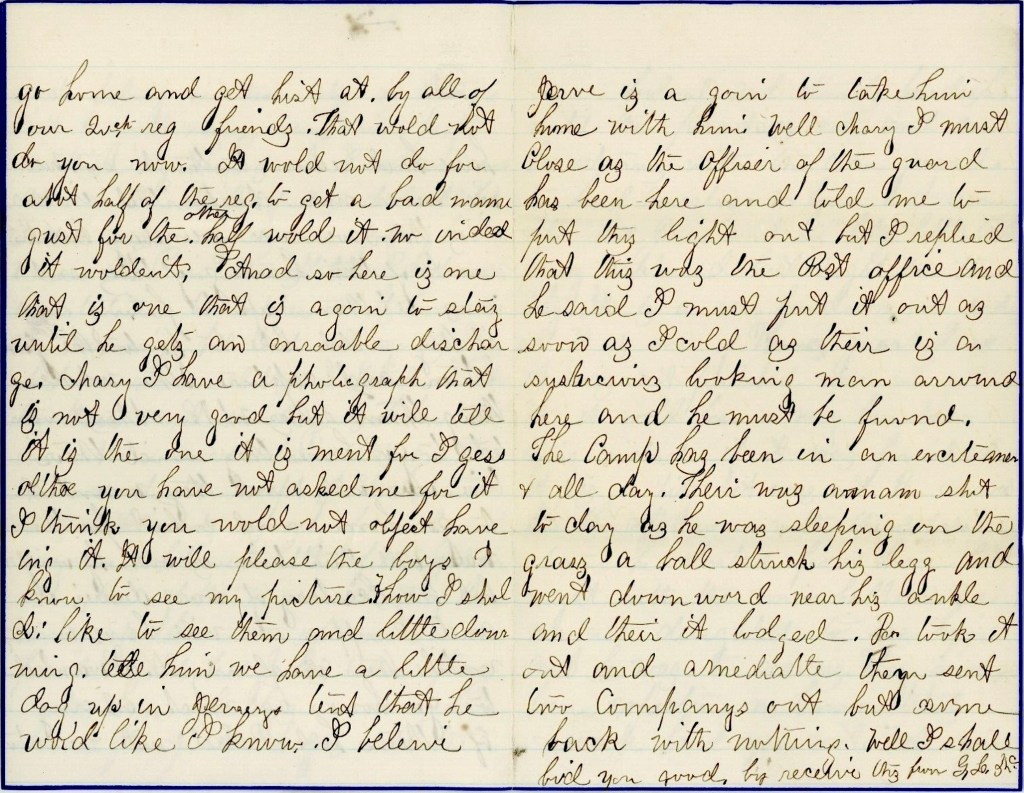 go home and get hist at. by all of
our reg friends. That wold not
do you now. It wold not do for
a bot half of the reg. to get a bad name
gust for the other half wold it. no indeed
it woldent. And so here is one
that is one that is agoin to stay
until he gets an onraable dischar
ge. Mary I have a photograph that
is not very good but it will tell
it is the one it is ment for I gess
altho you have not asked me for it
I think you wold not object have
ing it. It will please the boys I
know to see my picture. how I shol
d like to see them and little
ming. tell him we have a little
dog up in tent that he
wold like I know. I beleve
is a goin to take him
home with him. Well Mary I must
Close as the Offiser of the guard
has been here and told me to
put this light out but I replied
that this was the Post office and
he said I must put it out as
soon as I cold as their is a
looking man arround
here and he must be found.
The Camp has been in an excitemen
t all day. Their was a man shot
to day as he was sleeping on the
grass a ball struck his legg and
went downword near his ankle
and their it lodged. took it
out and amediatte they sent
two Companys out but come
back with nothing. Well I shall
bid you good by receive this from